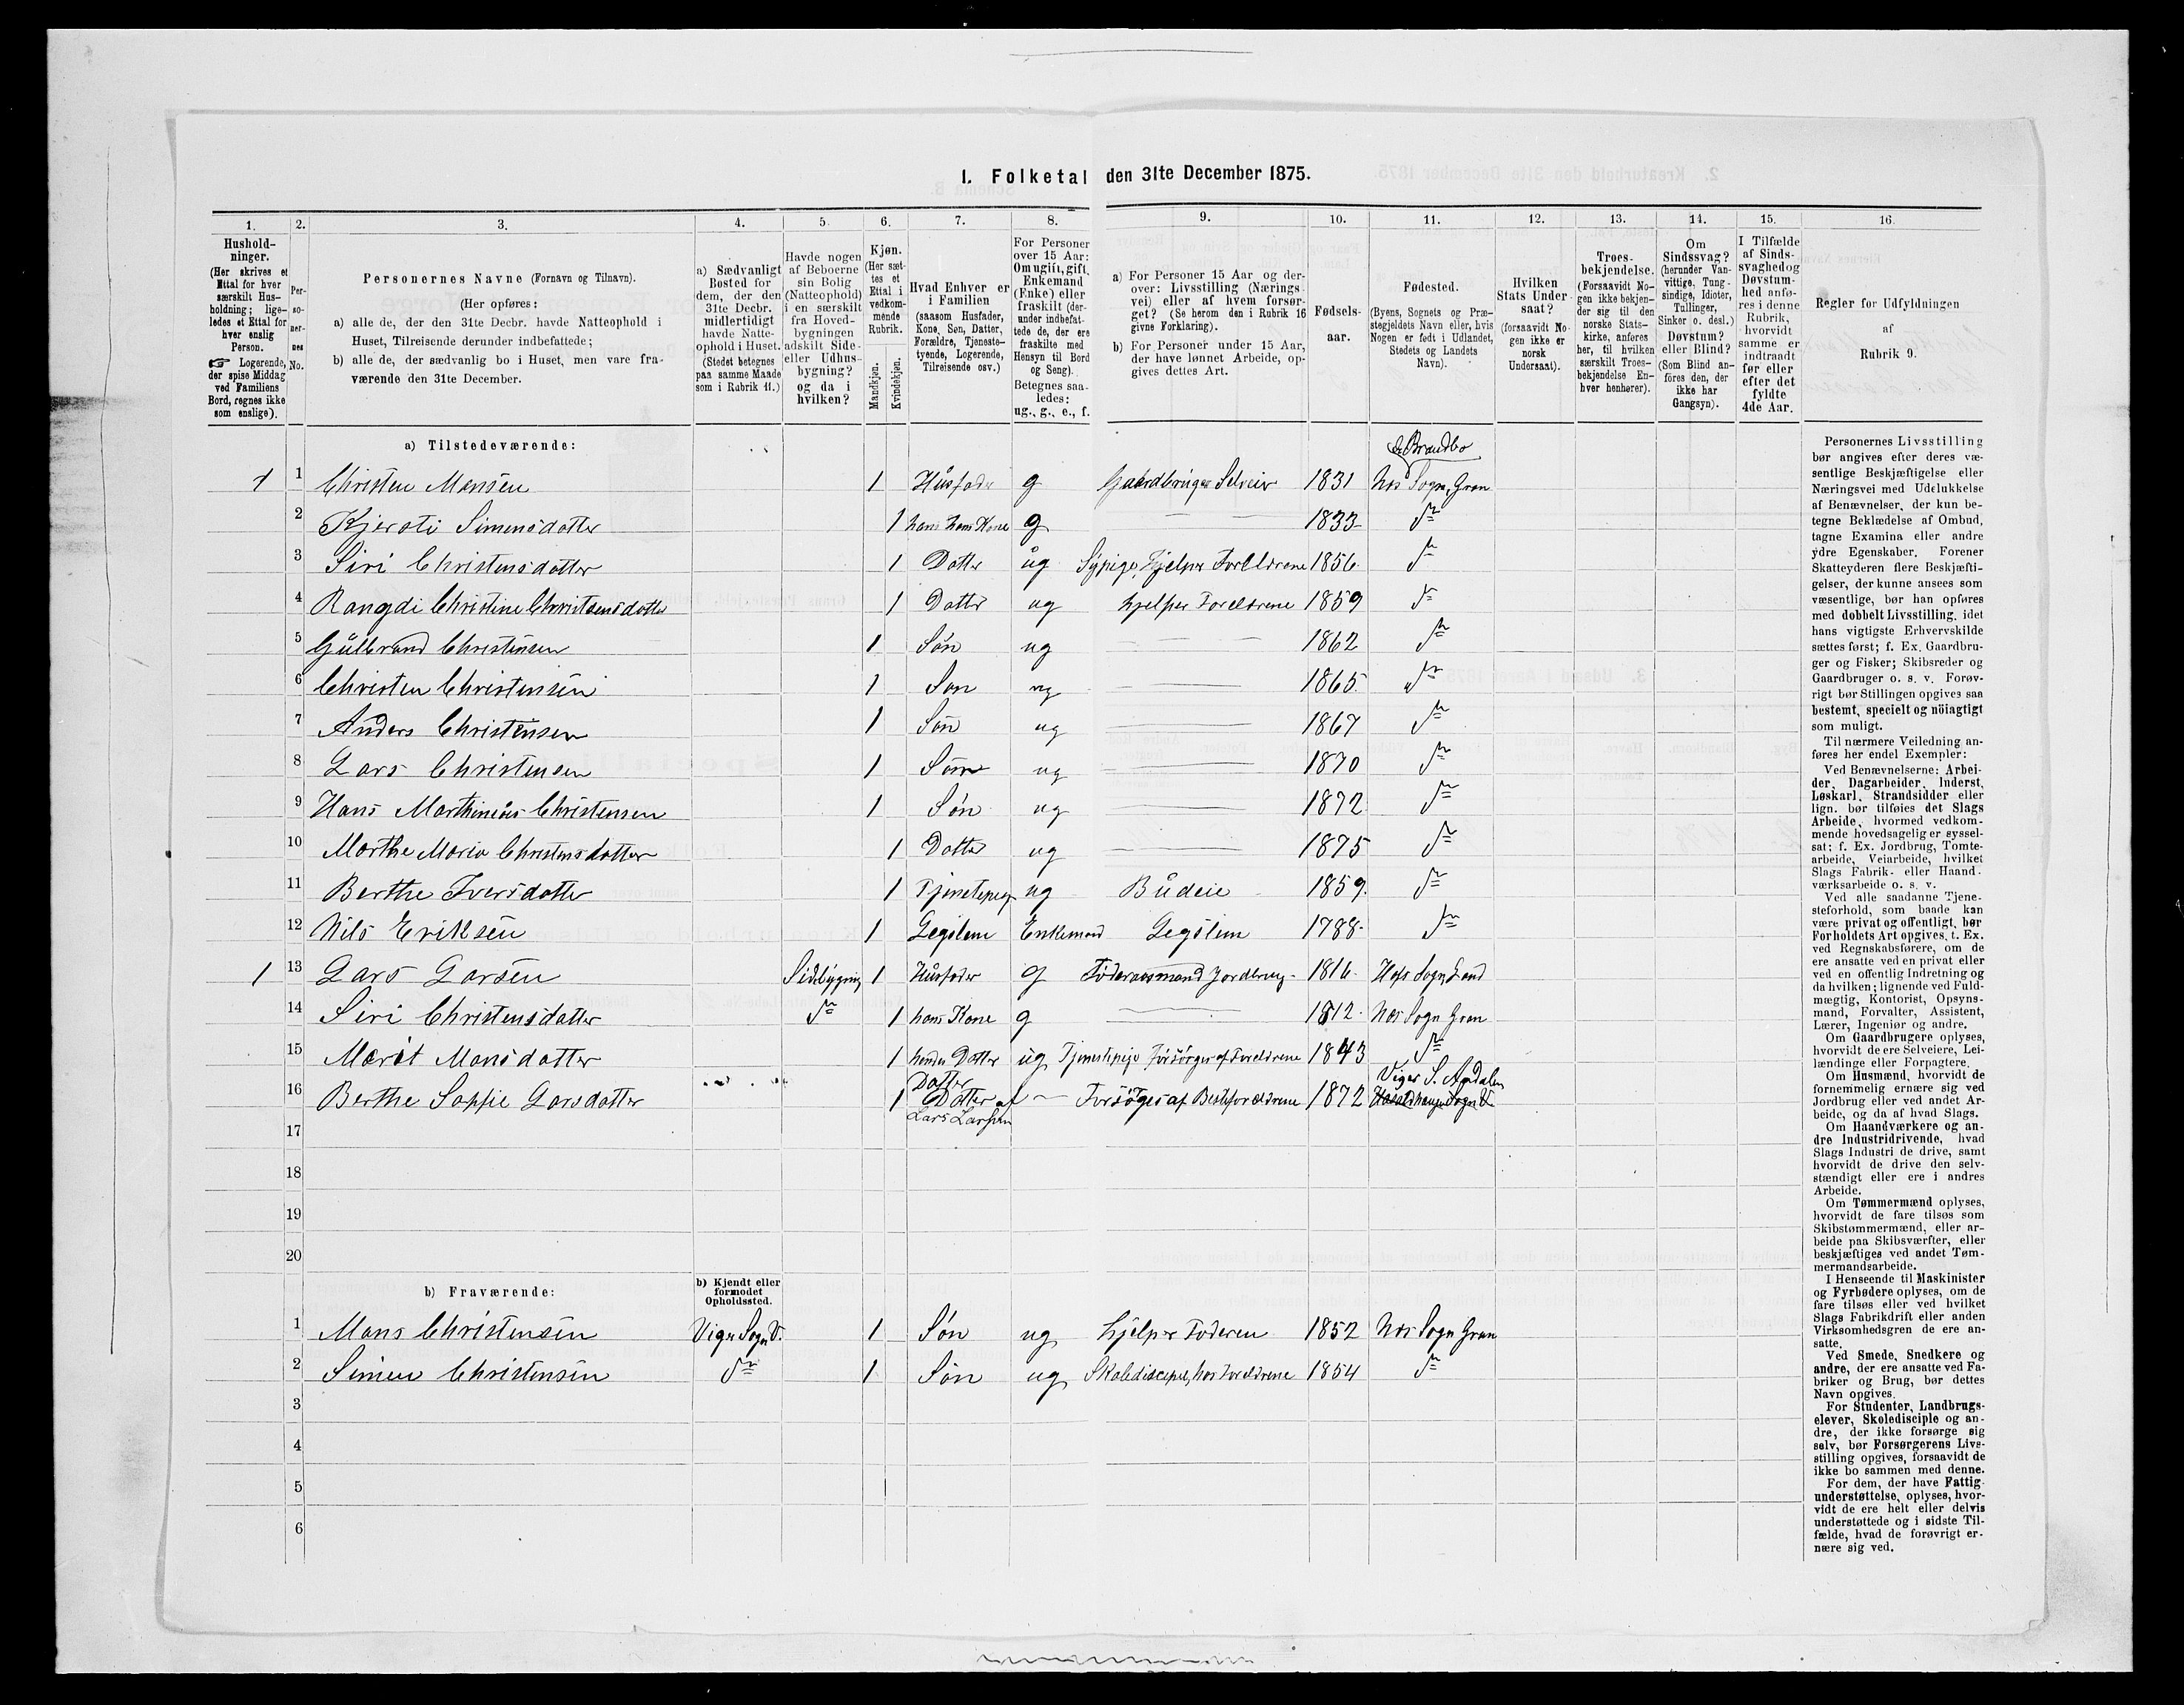 1. Folketal den 31te December 1875.
1. 2. 3. 4. 5. 6. 7. 8. 9. 10. 11. 12. 13. 14. 15. 16.
Hushold-
ninger.
(Her skrives et
Ettal for hver
særskilt Hus-
holdning; lige-
ledes et Ettal for
hver enslig
Person.
☞ Logerende,
der spise Middag
ved Familiens
Bord, regnes ikke
som enslige).
Per-
so-
ner-
nes
No.
Personernes Navne (Fornavn og Tilnavn).
(Her opføres:
a) alle de, der den 31te Decbr. havde Natteophold i
Huset, Tilreisende derunder indbefattede;
b) alle de, der sædvanlig bo i Huset, men vare fra-
værende den 31te December.
a) Sædvanligt
Bosted for
dem, der den
31te Decbr.
midlertidigt
havde Natte-
ophold i Huset.
(Stedet betegnes
paa samme Maade
som i Rubrik 11.)
Havde nogen
af Beboerne
sin Bolig
(Natteophold)
i en særskilt
fra Hoved-
bygningen
adskilt Side-
eller Udhus-
bygning?
og da i
hvilken?
Kjøn.
(Her sæt-
tes et
Ettal i
vedkom-
mende
Rubrik.
Mandkjøn.
Kvindekjøn.
Hvad Enhver er
i Familien
(saasom Husfader,
Kone, Søn, Datter,
Forældre, Tjeneste-
tyende, Logerende,
Tilreisende osv.)
For Personer
over 15 Aar:
Om ugift, gift,
Enkemand
(Enke) eller
fraskilt (der-
under indbefat-
tede de, der ere
fraskilte med
Hensyn til Bord
og Seng).
Betegnes saa-
ledes:
ug., g., e., f.
a) For Personer 15 Aar og der-
over: Livsstilling (Nærings-
vei) eller af hvem forsør-
get? (Se herom den i Rubrik 16
givne Forklaring).
b) For Personer under 15 Aar,
der have lønnet Arbeide, op-
gives dettes Art.
Fødsels-
aar.
Fødested.
(Byens, Sognets og Præ-
stegjeldets Navn eller, hvis
Nogen er født i Udlandet,
Stedets og Landets
Navn).
Hvilken
Stats Under-
saat?
(forsaavidt No-
gen ikke er
norsk
Undersaat).
Troes-
bekjendelse.
(Forsaavidt No-
gen ikke bekjen-
der sig til den
norske Stats-
kirke, anføres
her, til hvilken
særskilt Troes-
bekjendelse En-
hver henhører).
Om
Sindssvag?
(herunder Van-
vittige, Tung-
sindige, Idioter,
Tullinger,
Sinker o. desl.)
Døvstum?
eller Blind?
(Som Blind an-
føres den, der
ikke har
Gangsyn).
I Tilfælde
af Sinds-
svaghed og
Døvstum-
hed anfø-
res i denne
Rubrik,
hvorvidt
samme er
indtraadt
før eller
efter det
fyldte
4de Aar.
Regler for Udfyldningen
af
Rubrik 9.
a) Tilstedeværende:
Brandbo
1 1 Christen Monsen 1 Husfader g Gaardbruger Selveier 1831 Næs Sogn, Gran
2 Kjersti Simensdatter 1 hans Kone g 1833
3 Siri Christensdatter 1 Datter ug Sypige, Hjelper Foreldrene 1856
4 Rangdi Christine Christensdatter 1 Datter ug hjelper Foreldrene 1859
5 Gulbrand Christensen 1 Søn ug 1862
6 Christen Christensen 1 Søn ug 1865
7 Anders Christensen 1 Søn ug 1867
8 Lars Christensen 1 Søn ug 1870
9 Hans Marthineus Christensen 1 Søn ug 1872
10 Marthe Maria Christensdatter 1 Datter ug 1875
11 Berthe Iversdatter 1 Tjenstepige ug Budeie 1859.
12 Nils Eriksen 1 Legslem Enkemand Legslem 1788.
1 13 Lars Larsen Sidebygning 1 Husfader g Føderaadsmand Jordbrug 1816 Hofs Sogn Land
14 Siri Christensdatter 1 hans Kone g 1812. Næs Sogn Gran
15 Marit Monsdatter 1 hendes Datter ug Tjenstepige Forsørges af Foreldrene 1843
Viger S. Aadalen
16 Berthe Sophie Larsdatter 1 Datter Datter af Lars Larsen Forsørges af Besteforeldrene 1872
17
18
19
20
b) Fraværende:
b) Kjendt eller
formodet
Opholdssted.
1 Mons Christensen Viger Sogn 1 Søn ug hjelper Faderen 1852 Næs Sogn Gran
2 Simen Christensen 1 Søn ug Skoledisciple, hos Foreldrene 1854
3
4
5
6
Personernes Livsstilling
bør angives efter deres væ-
sentlige Beskjæftigelse eller
Næringsvei med Udelukkelse
af Benævnelser, der kun be-
tegne Beklædelse af Ombud,
tagne Examina eller andre
ydre Egenskaber. Forener
Skatteyderen flere Beskjæfti-
gelser, der kunne ansees som
væsentlige, bør han opføres
med dobbelt Livsstilling, idet
hans vigtigste Erhvervskilde
sættes først; f. Ex. Gaardbru-
ger og Fisker; Skibsreder og
Gaardbruger o. s. v. Forøv-
rigt bør Stillingen opgives saa
bestemt, specielt og nöiagtigt
som muligt.
Til nærmere Veiledning an-
føres her endel Exempler:
Ved Benævnelserne: Arbei-
der, Dagarbeider, Inderst,
Løskarl, Strandsidder eller
lign. bør tilføies det Slags
Arbeide, hvormed vedkom-
mende hovedsagelig er syssel-
sat; f. Ex. Jordbrug, Tomte-
arbeide, Veiarbeide, hvilket
Slags Fabrik- eller Haand-
værksarbeide o. s. v.
Ved alle saadanne Tjene-
steforhold, som baade kan
være privat og offentligt, bør
Forholdets Art opgives, t. Ex.
ved Regnskabsførere, om de
ere ansatte ved en privat eller
ved en offentlig Indretning og
da hvilken; lignende ved Fuld-
mægtig, Kontorist, Opsyns-
mand, Forvalter, Assistent,
Lærer, Ingeniør og andre.
Om Gaardbrugere oplyses,
hvorvidt de ere Selveiere, Lei-
lændinge eller Forpagtere.
Om Husmænd, hvorvidt de
fornemmelig ernære sig ved
Jordbrug eller ved andet Ar-
beide, og da af hvad Slags.
Om Haandværkere og an-
dre Industridrivende, hvad
Slags Industri de drive, samt
hvorvidt de drive den selv-
stændigt eller ere i andres
Arbeide.
Om Tømmermænd oplyses,
hvorvidt de fare tilsøs som
Skibstømmermænd, eller ar-
beide paa Skibsværfter, eller
beskjæftiges ved andet Tøm-
mermandsarbeide.
I Henseende til Maskinister
og Fyrbødere oplyses, om de
fare tilsøs eller ved hvilket
Slags Fabrikdrift eller anden
Virksomhedsgren de ere an-
satte.
Ved Smede, Snedkere og
andre, der ere ansatte ved Fa-
briker og Brug, bør dettes
Navn opgives.
For Studenter, Landbrugs-
elever, Skoledisciple og an-
dre, der ikke forsørge sig
selv, bør Forsørgerens Livs-
stilling opgives, forsaavidt de
ikke bo sammen med denne.
For dem, der have Fattig-
understøttelse, oplyses, hvor-
vidt de ere helt eller delvis
understøttede og i sidste Til-
fælde, hvad de forøvrigt er-
nære sig ved.